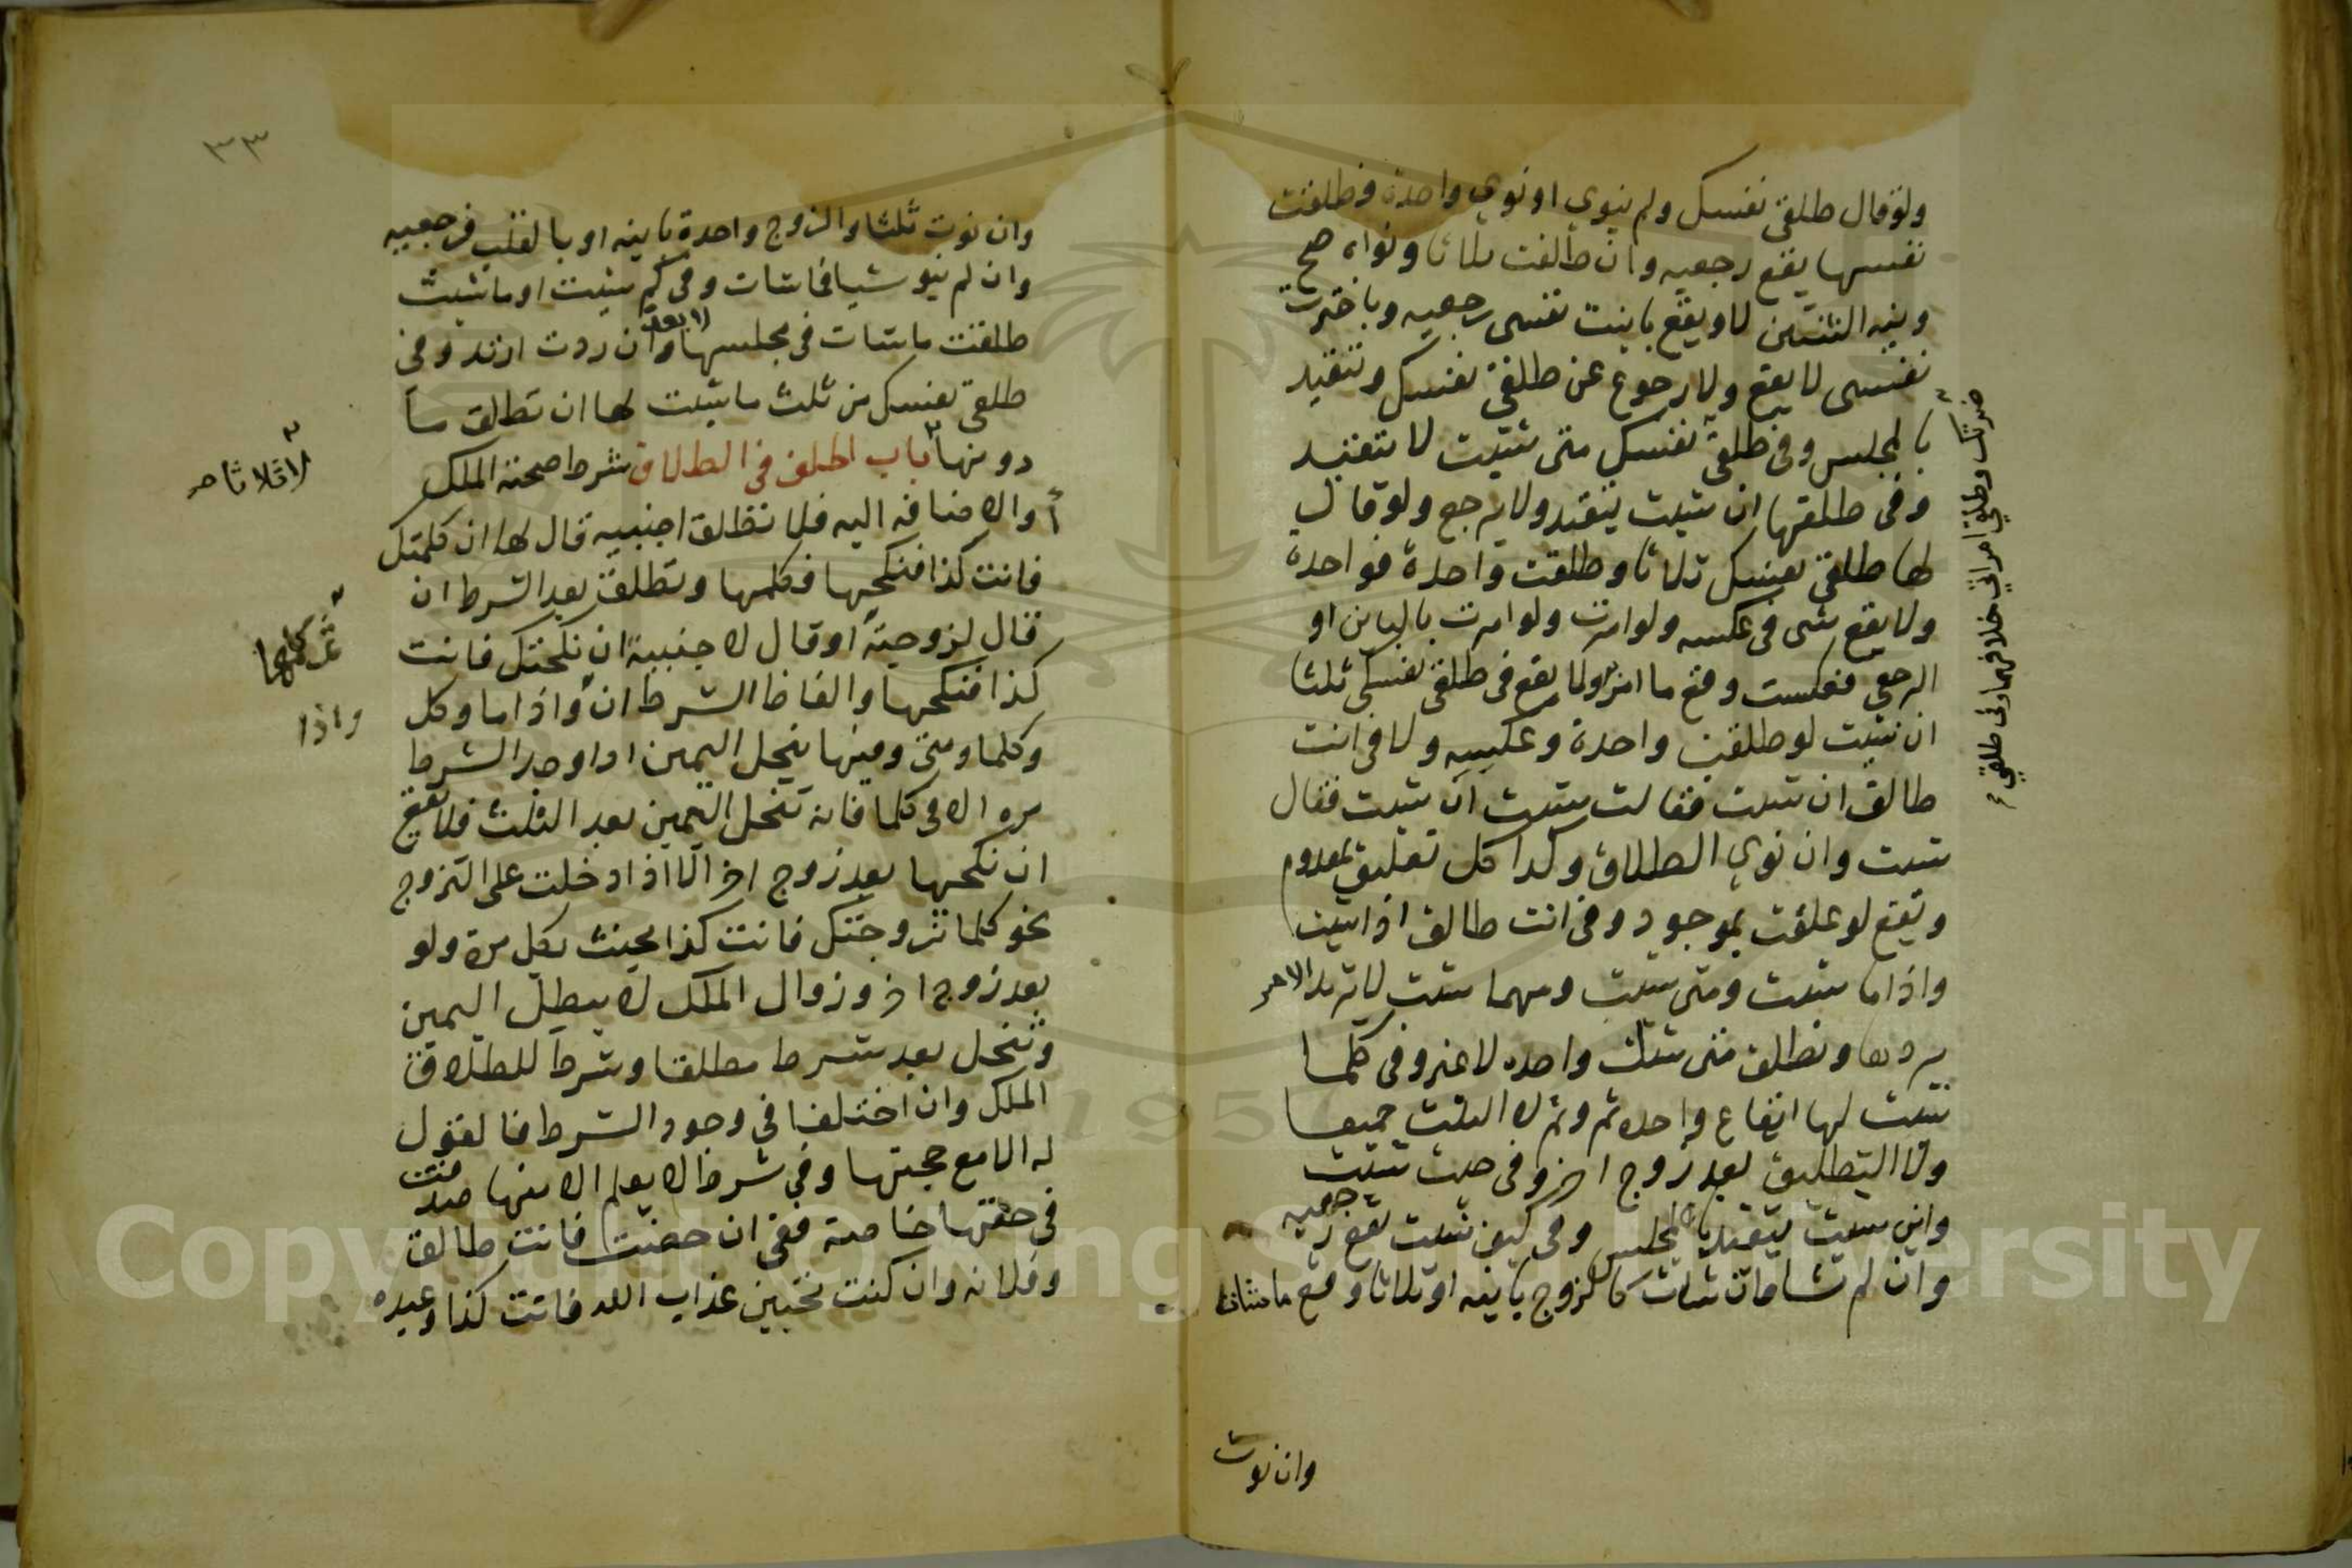 ولو قال طلقي نفسك ولم ينوي او نوي واحدة فطلقت
نفسها يقع رجعيه وان طلقت ثلاثا ونواه صح
ونيه الثنتين لا ويقع بابنت نفسي رجعيه وباخترت
نفسي لا يقع ولا رجوع عن طلقي نفسك وتتقيد
بالمجلس وفي طلقي نفسك متى شئت لا يتقيد
وفي طلقها ان شئت يتقيد ولا يرجع ولو قال
لها طلقي نفسك ثلاثا وطلقت واحدة فواحدة
ولا يقع شي في عكسه ولو امرت بالباين او
الرجعي فعكست وقع ما امر ولا يقع في طلقي نفسك ثلثا
ان شئت لو طلقت واحدة وعكسه ولا في انت
طالق ان شئت فقالت شئت ان شئت فقال
شئت وان نوي الطلاق وكذا كل تعليق بمعدوم
ويقع لو علقت بموجود وفي انت طالق اذا شئت
واذا ما شئت ومتى شئت ومهما شئت لا يرتد الامر
بردها وتطلق متى شئت واحده لا غير وفي كلما
شئت لها ايقاع واحده ثم وثم لا الثلث جميعا
ولا التطليق بعد زوج اخر وفي حيث شئت
واين شئت يتقيد بالمجلس وفي كيف شئت يقع رجعيه
وان لم تشا فان شات كالزوج باينه او ثلاثا وقع ما شات
وان نوت
ضرتك وطلقي امراتي خلافهما وفي طلقي
٣٣
وان نوت ثلثا والزوج واحدة باينه او بالقلب فرجعيه
وان لم ينو شيا فما شات وفي كم شئت او ما شئت
طلقت ما شات في مجلسها لا بعد وان ردت ارتد وفي
طلقي نفسك من ثلث ما شئت لها ان تطلق ما
دونها باب الحلف في الطلاق شرط صحته الملك
لا ثلاثا صح
أ والاضافه اليه فلا تطلق اجنبيه قال لها ان كلمتك
فانت كذا فنكحها فكلمها وتطلق بعد الشرط ان
قال لزوجته او قال لاجنبية ان نكحتك فانت
ثم كلمها
كذا فنكحها والفاظ الشرط ان واذا ما وكل
واذا
وكلما ومتى وفيها ينحل اليمين اذا وجد الشرط
مره الا في كلما فانه تنحل اليمين بعد الثلث فلا يقع
ان نكحها بعد زوج اخر الا اذا دخلت على التزوج
نحو كلما تزوجتك فانت كذا يحنث بكل مرة ولو
بعد زوج اخر وزوال الملك لا يبطل اليمين
وتنحل بعد شرط مطلقا وشرط للطلاق
الملك وان اختلفا في وجود الشرط فالقول
له الا مع حجتها وفي شرط لا يعلم الا منها صدقت
في حقها خاصة ففي ان حضت فانت طالق
وفلانه وان كنت تحبين عذاب الله فانت كذا وعبده